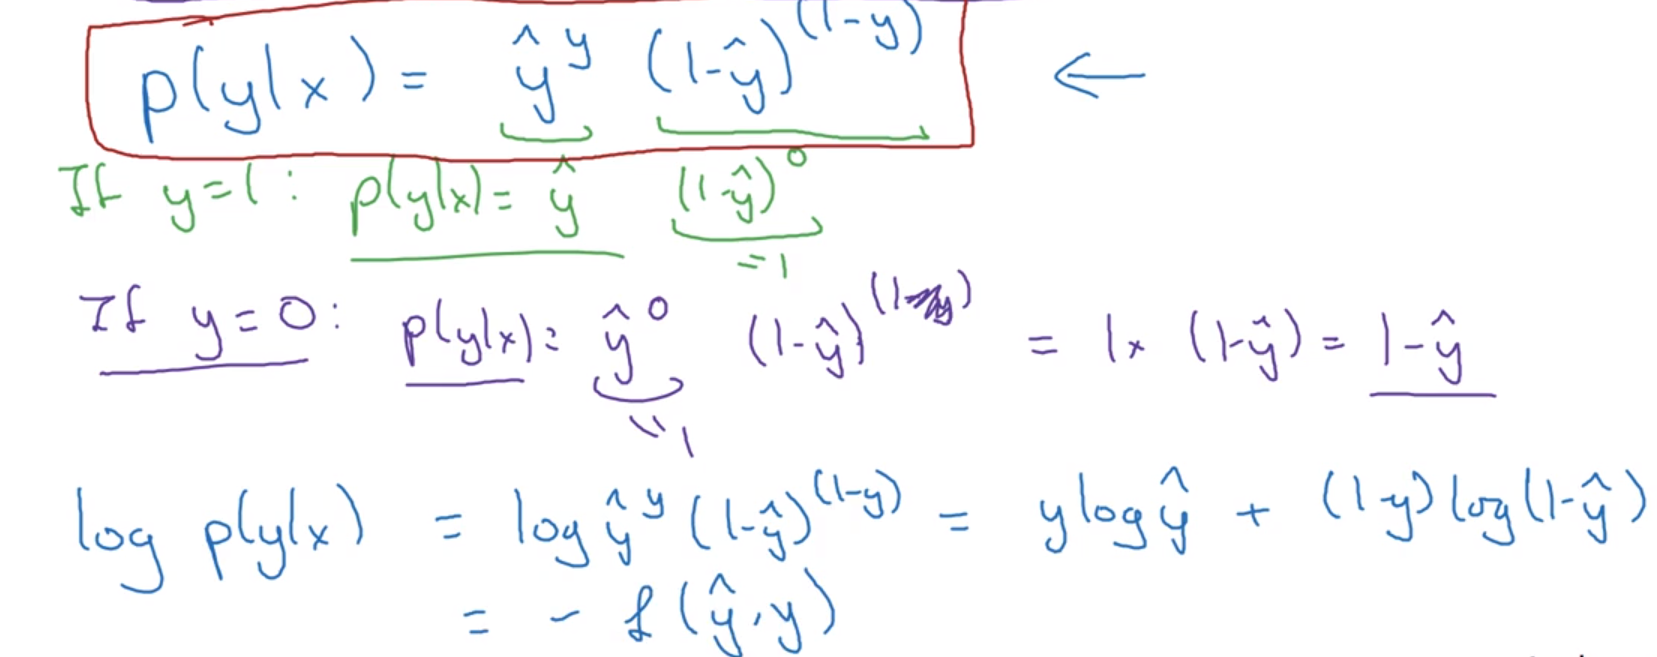 p(y|x) = ŷ^y (1-ŷ)^(1-y) ←
If y=1: p(y|x) = ŷ (1-ŷ)^0
=1
If y=0: p(y|x) = ŷ^0 (1-ŷ)^(1-y) = 1× (1-ŷ) = 1-ŷ
=1
log p(y|x) = log ŷ^y (1-ŷ)^(1-y) = y log ŷ + (1-y) log(1-ŷ)
= - ℒ(ŷ,y)